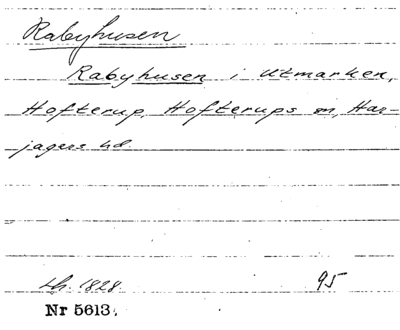 Rabyhusen
Rabyhusen i Utmarken,
Hofterup, Hofterups sn, Har-
jagers hd.
Lh. 1828. 95
Nr 5613.